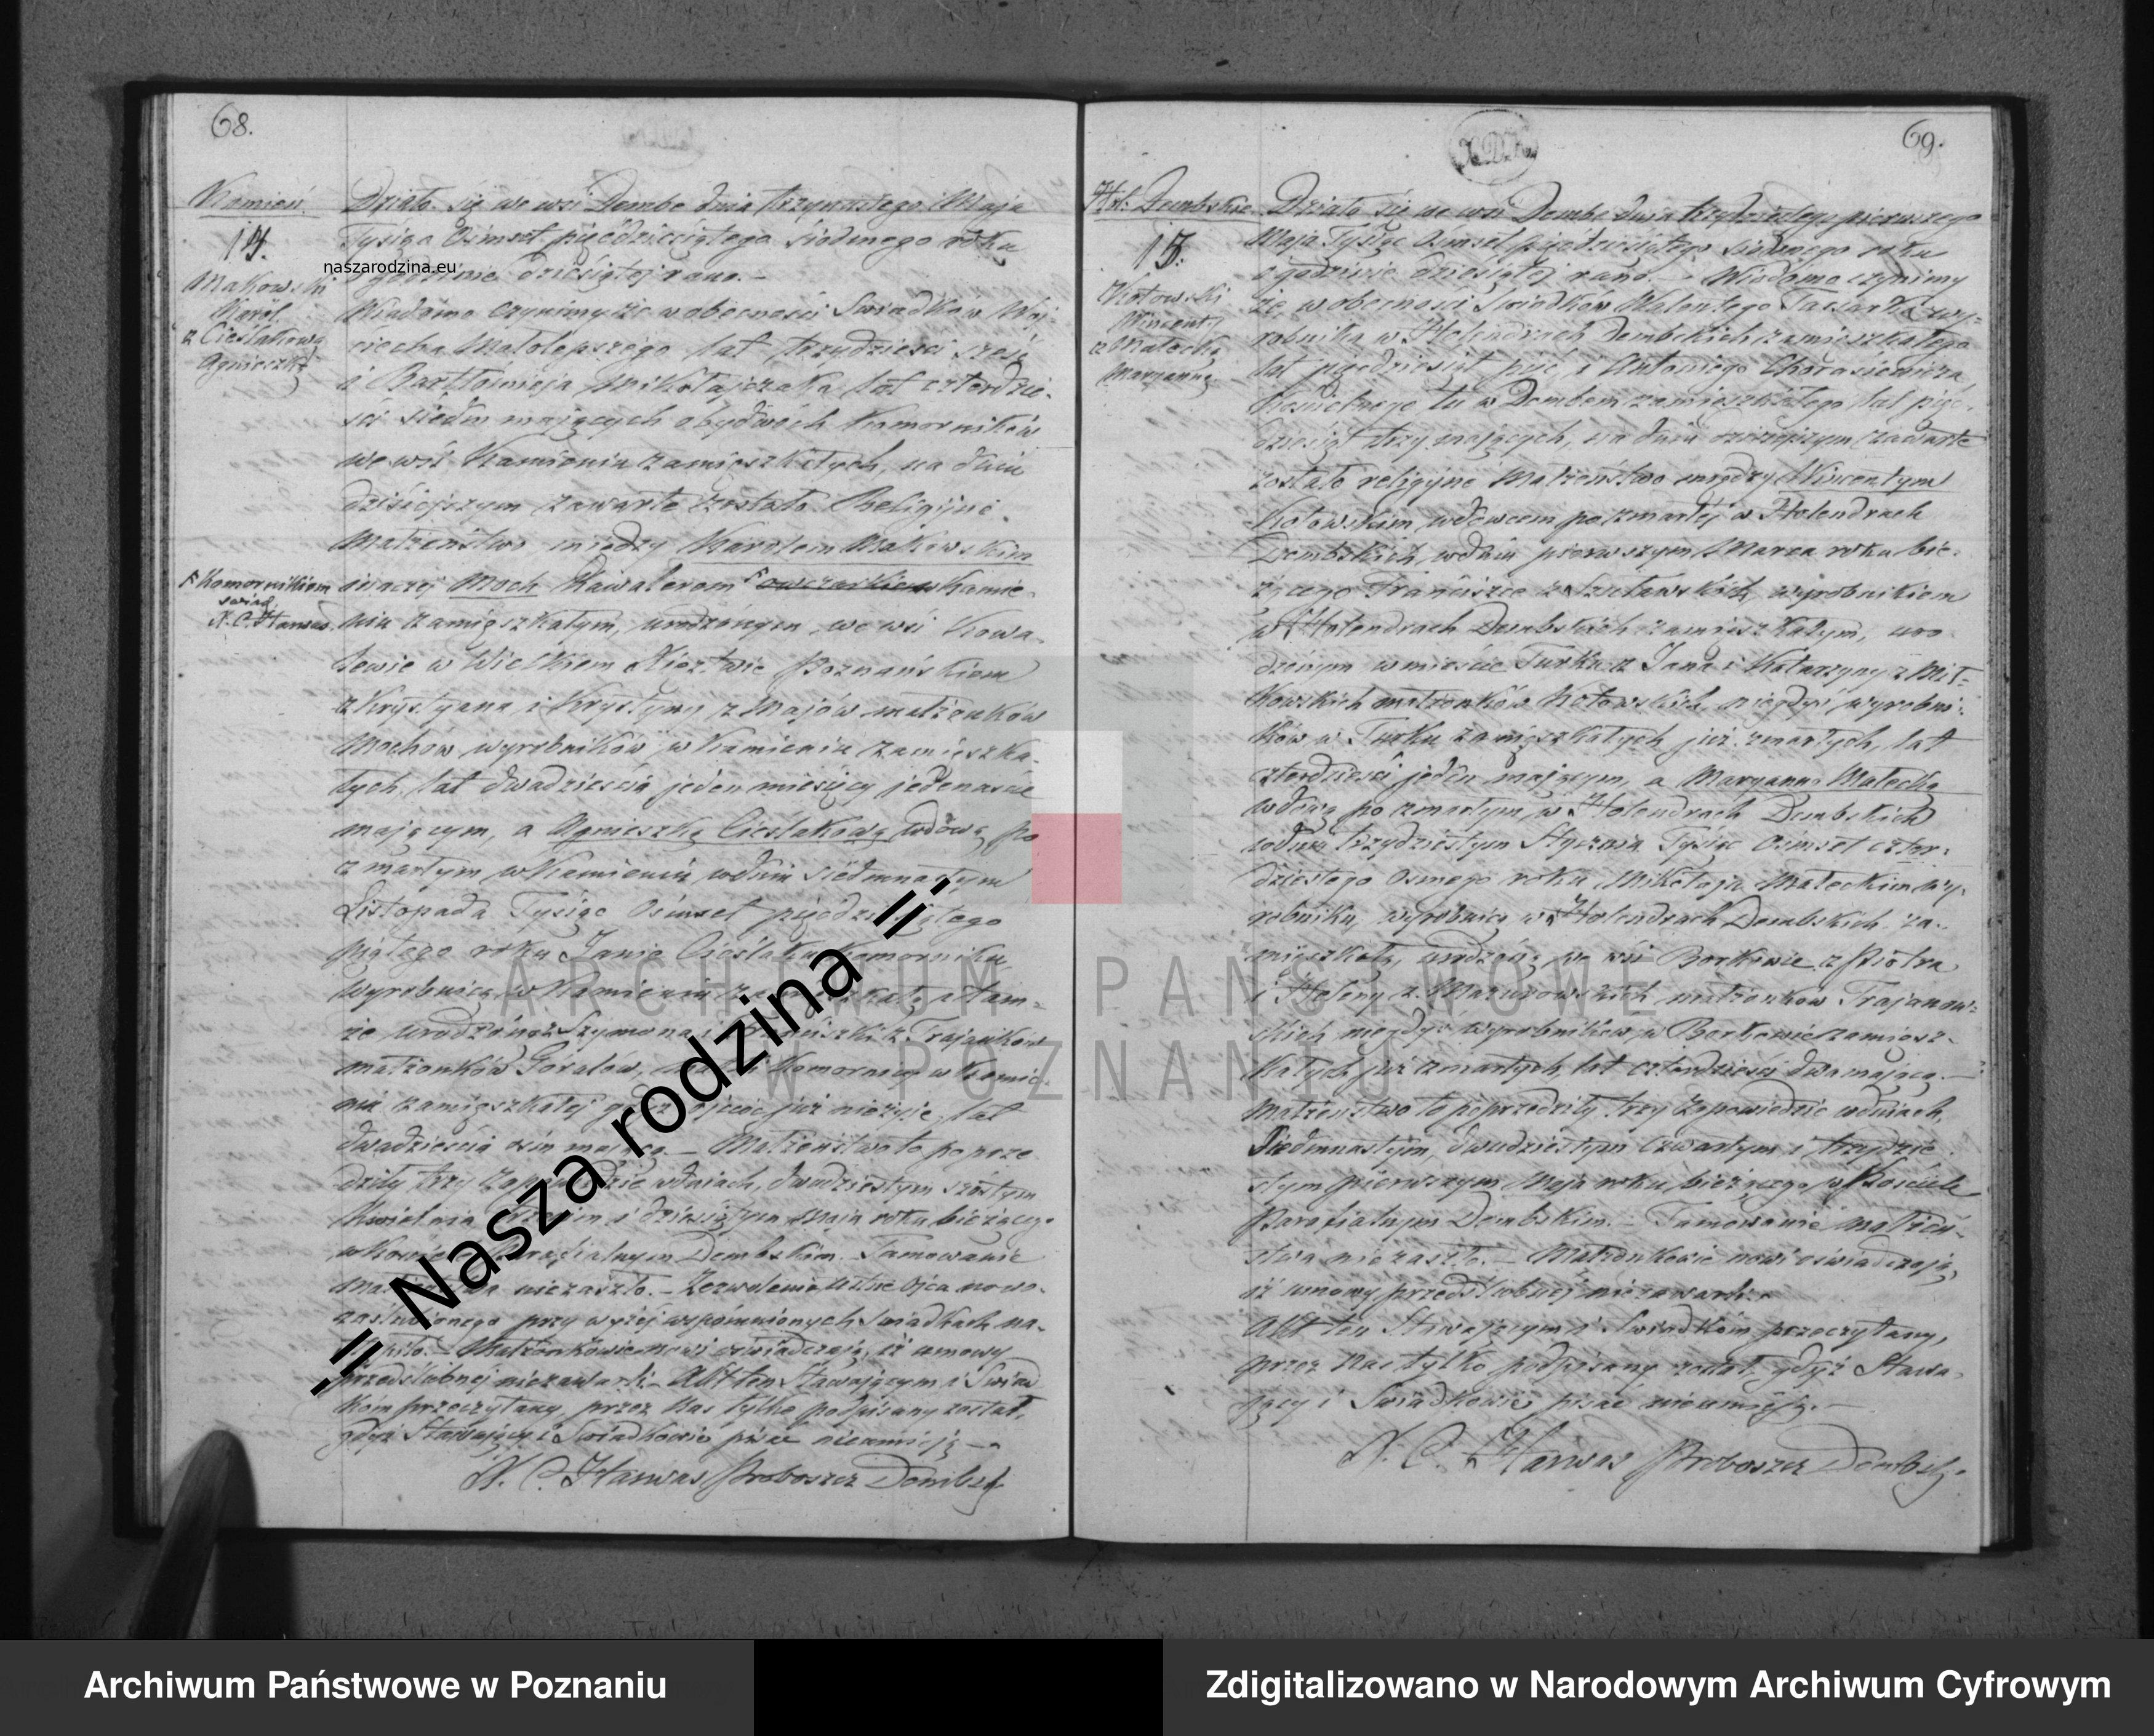 68.
Kamień
14.
Makowski
Karol
z Cieślakową
Agnieszką
Działo się we wsi Dembe dnia trzynastego Maja
Tysiąc Ośmset pięćdziesiątego siódmego roku
naszarodzina.eu
o godzinie dziesiątej rano. –
Wiadomo czynimy że w obecności Swiadków Woj-
ciecha Małolepszego lat trzydzieści sześć
i Bartłomieja Mikołajczaka lat czterdzie-
ści siedm mających obydwóch Komorników
we wsi Kamieniu zamieszkałych, na dniu
dzisiejszym zawarte zostało Religijne
Małżeństwo między Karolem Makowskim
inaczej Moch Kawalerem owczarkiem w Kamie-
Komornikiem
X. C. Hanwas
niu zamięszkałym, urodzonym we wsi Kowa-
lewie w Wielkiem Xięztwie Poznańskiem
z Krystyana i Krystyny z Majów małżonków
Mochów wyrobników w Kamieniu zamięszka-
łych, lat dwadzieścia jeden miesięcy jedenaście
mającym, a Agnieszką Cieślakową wdową po
zmarłym w Kamieniu w dniu siedmnastym
Listopada Tysiąc Ośmset
piątego roku Janie Cieślaku Komorniku,
Wyrobnicą w Kamieniu tam-
że urodzoną z Szymona i z Trajaników
małżonków Góralów, Komornicy w Kamie-
niu zamięszkałej gdyż ojciec już nieżyje, lat
dwadzieścia ośm mającą. – Małżeństwo to poprze
dziły trzy zapowiedzie w dniach, dwudziestym szóstym
Kwietnia trzecim i dziesiątym Maja roku bieżącego
w Kościele Parafialnym Dembskim. Tamowanie
Małżeństwa niezaszło. – Zezwolenie ustne Ojca nowo-
zaślubionego przy wyżej wspomnionych Swiadkach na-
stąpiło. – Małżonkowie nowi oświadczają, iż umowy
przedślubnej niezawarli. – Akt ten Stawającym i Swiad
kom przeczytany, przez Nas tylko podpisany został,
gdyż Stawający i Swiadkowie pisać nieumieją. –
X. C. Hanwas Proboszcz Dembski
69.
Hol. Dembskie
15.
Kotowski
Wincenty
z Małecką
Maryanną
Działo się we wsi Dembe dnia trzydziestego pierwszego
Maja Tysiąc Ośmset pięćdziesiątego siódmego roku
o godzinie dziesiątej rano. – Wiadomo czynimy
że w obecności Swiadków Walentego wy-
robnika w Holendrach Dembskich zamieszkałego
lat pięćdziesiąt pięć i Antoniego Chorasiewicza
Kościelnego tu w Dembem zamieszkałego lat pięć-
dziesiąt trzy mających, na dniu dzisiejszym zawarte
zostało religijne Małżeństwo między Wincentym
Kotowskim wdowcem po zmarłej w Holendrach
Dembskich w dniu pierwszym Marca roku bie-
żącego Franciszce z wyrobnikiem
w Holendrach Dembskich zamieszkałym, uro
dzonym w mieście Turku z Jana i Katarzyny z Mił-
kowskich małżonków Kotowskich, niegdyś wyrobni-
ków w Turku zamięszkałych już zmarłych, lat
czterdzieści jeden mającym, a Maryanną Małecką
wdową po zmarłym w Holendrach Dembskich
w dniu trzydziestym Stycznia Tysiąc Ośmset czter-
dziestego ósmego roku Mikołaju Małeckim wy-
robniku, wyrobnicą w Holendrach Dembskich za-
mięszkałą, urodzoną we wsi Borkowie z Piotra
i Heleny z Mazurowskich małżonków Trajanow-
skich niegdyś wyrobników w Borkowie zamiesz-
kałych już zmarłych, lat czterdzieści dwa mającą. –
Małżeństwo to poprzedziły trzy zapowiedzie w dniach,
Siedmnastym, dwudziestym czwartym i trzydzie
stym pierwszym Maja roku bieżącego w Kościele
Parafialnym Dembskim. – Tamowanie małżeń-
stwa niezaszło. – Małżonkowie nowi oświadczają,
iż umowy przedślubnej niezawarli. –
Akt ten Stawającym i Swiadkom przeczytany,
przez Nas tylko podpisany został, gdyż Stawa-
jący i Swiadkowie pisać nieumieją. –
X. C. Hanwas Proboszcz Dembski.
ARCHIWUM PAŃSTWOWE
W POZNANIU
-= Nasza rodzina =-
Archiwum Państwowe w Poznaniu
Zdigitalizowano w Narodowym Archiwum Cyfrowym